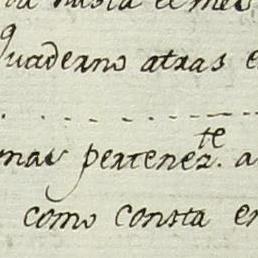 hasta el mes
Quaderno atras e
mas pertenez.te a
como consta en